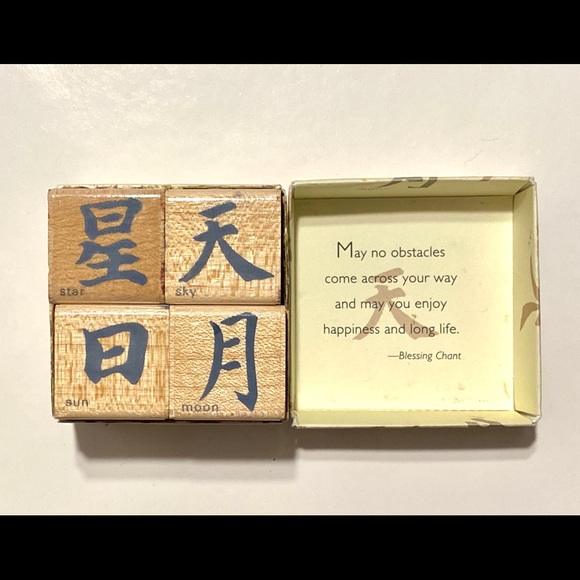 星
star
天
sky
日
sun
月
moon
天
May no obstacles
come across your way
and may you enjoy
happiness and long life.
—Blessing Chant